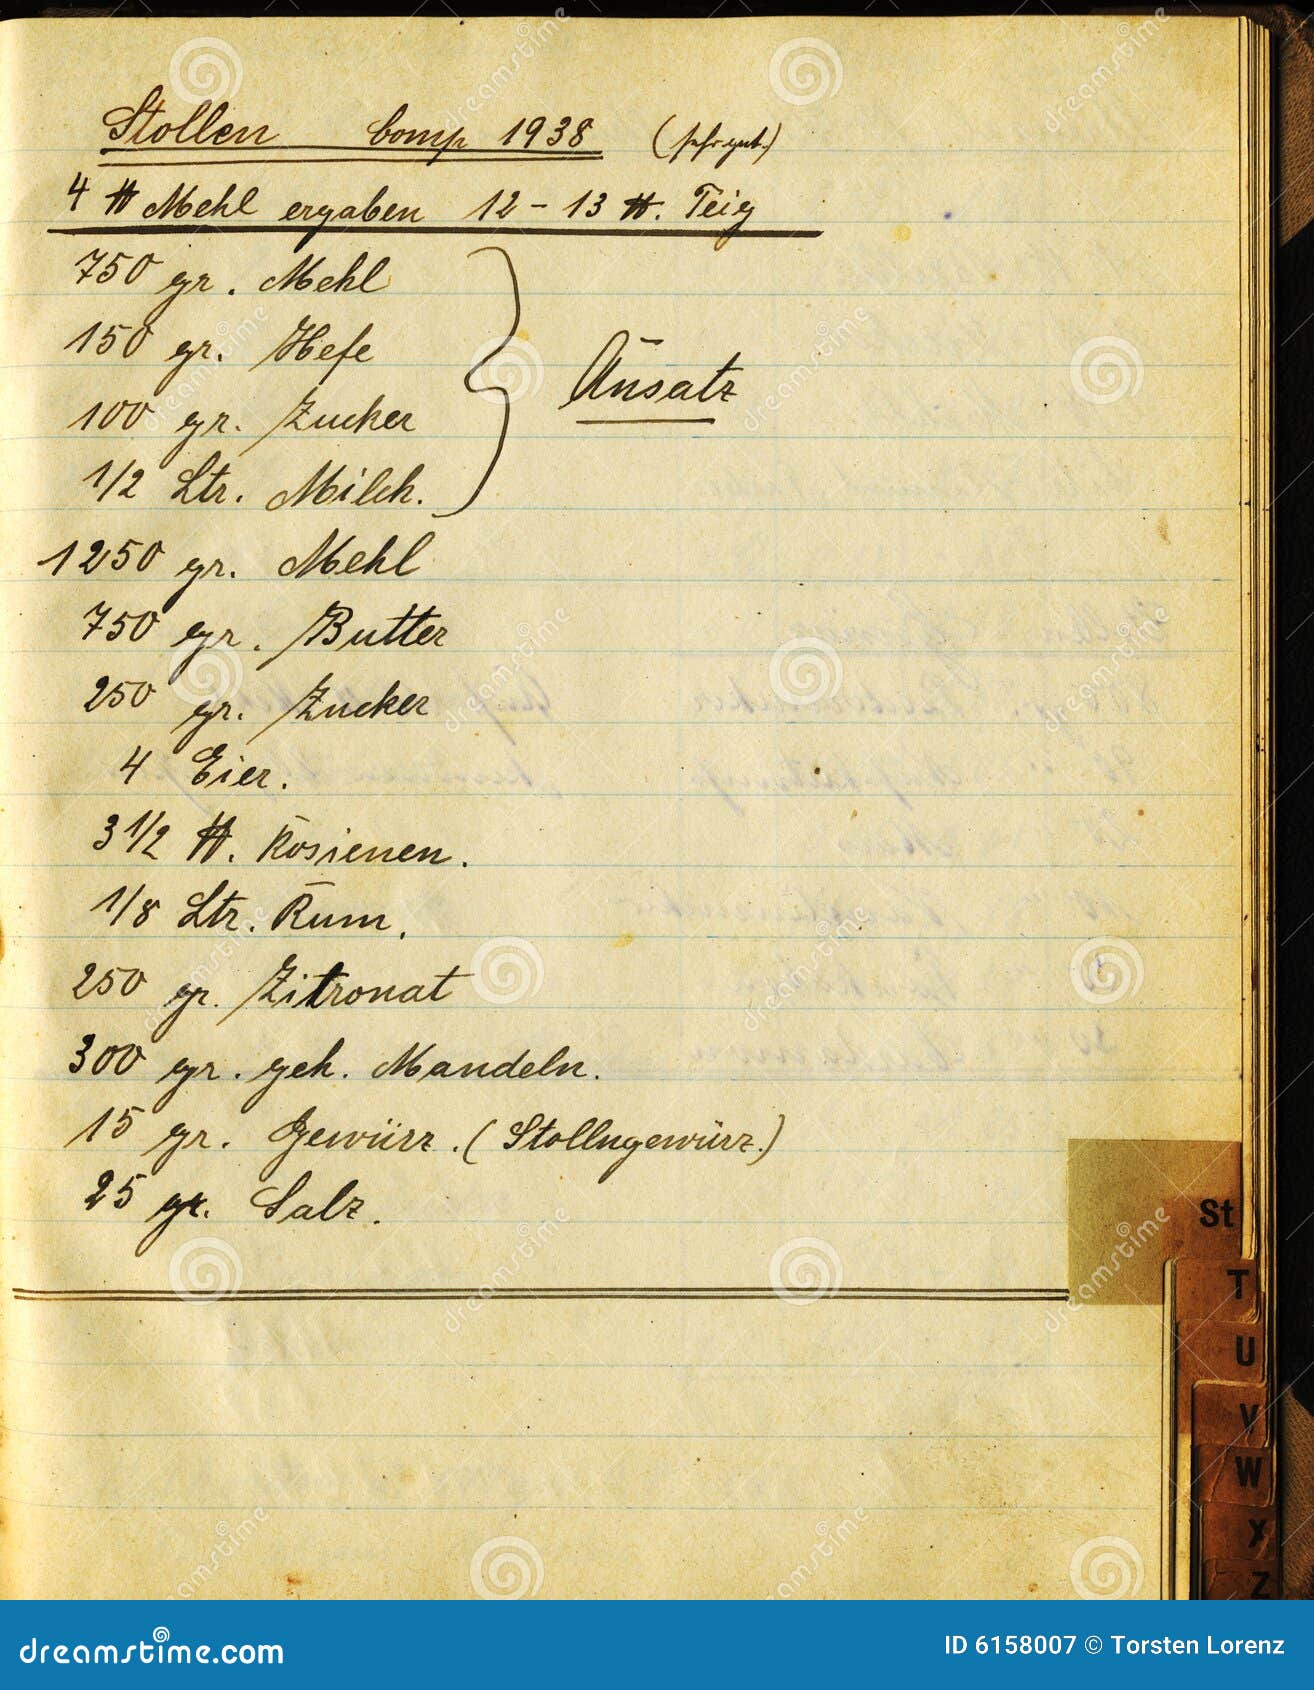 Stollen comp 1938 (sehr gut.)
4 ℔ Mehl ergaben 12 - 13 ℔. Teig
750 gr. Mehl
150 gr. Hefe
100 gr. Zucker
1/2 Ltr. Milch.
Ansatz
1250 gr. Mehl
750 gr. Butter
250 gr. Zucker
4 Eier.
3 1/2 ℔. Rosienen.
1/8 Ltr. Rum.
250 gr. Zitronat
300 gr. geh. Mandeln.
15 gr. Gewürz. (Stollngewürz.)
25 gr. Salz.
St
T
U
V
W
X
Z
dreamstime.com
ID 6158007 © Torsten Lorenz